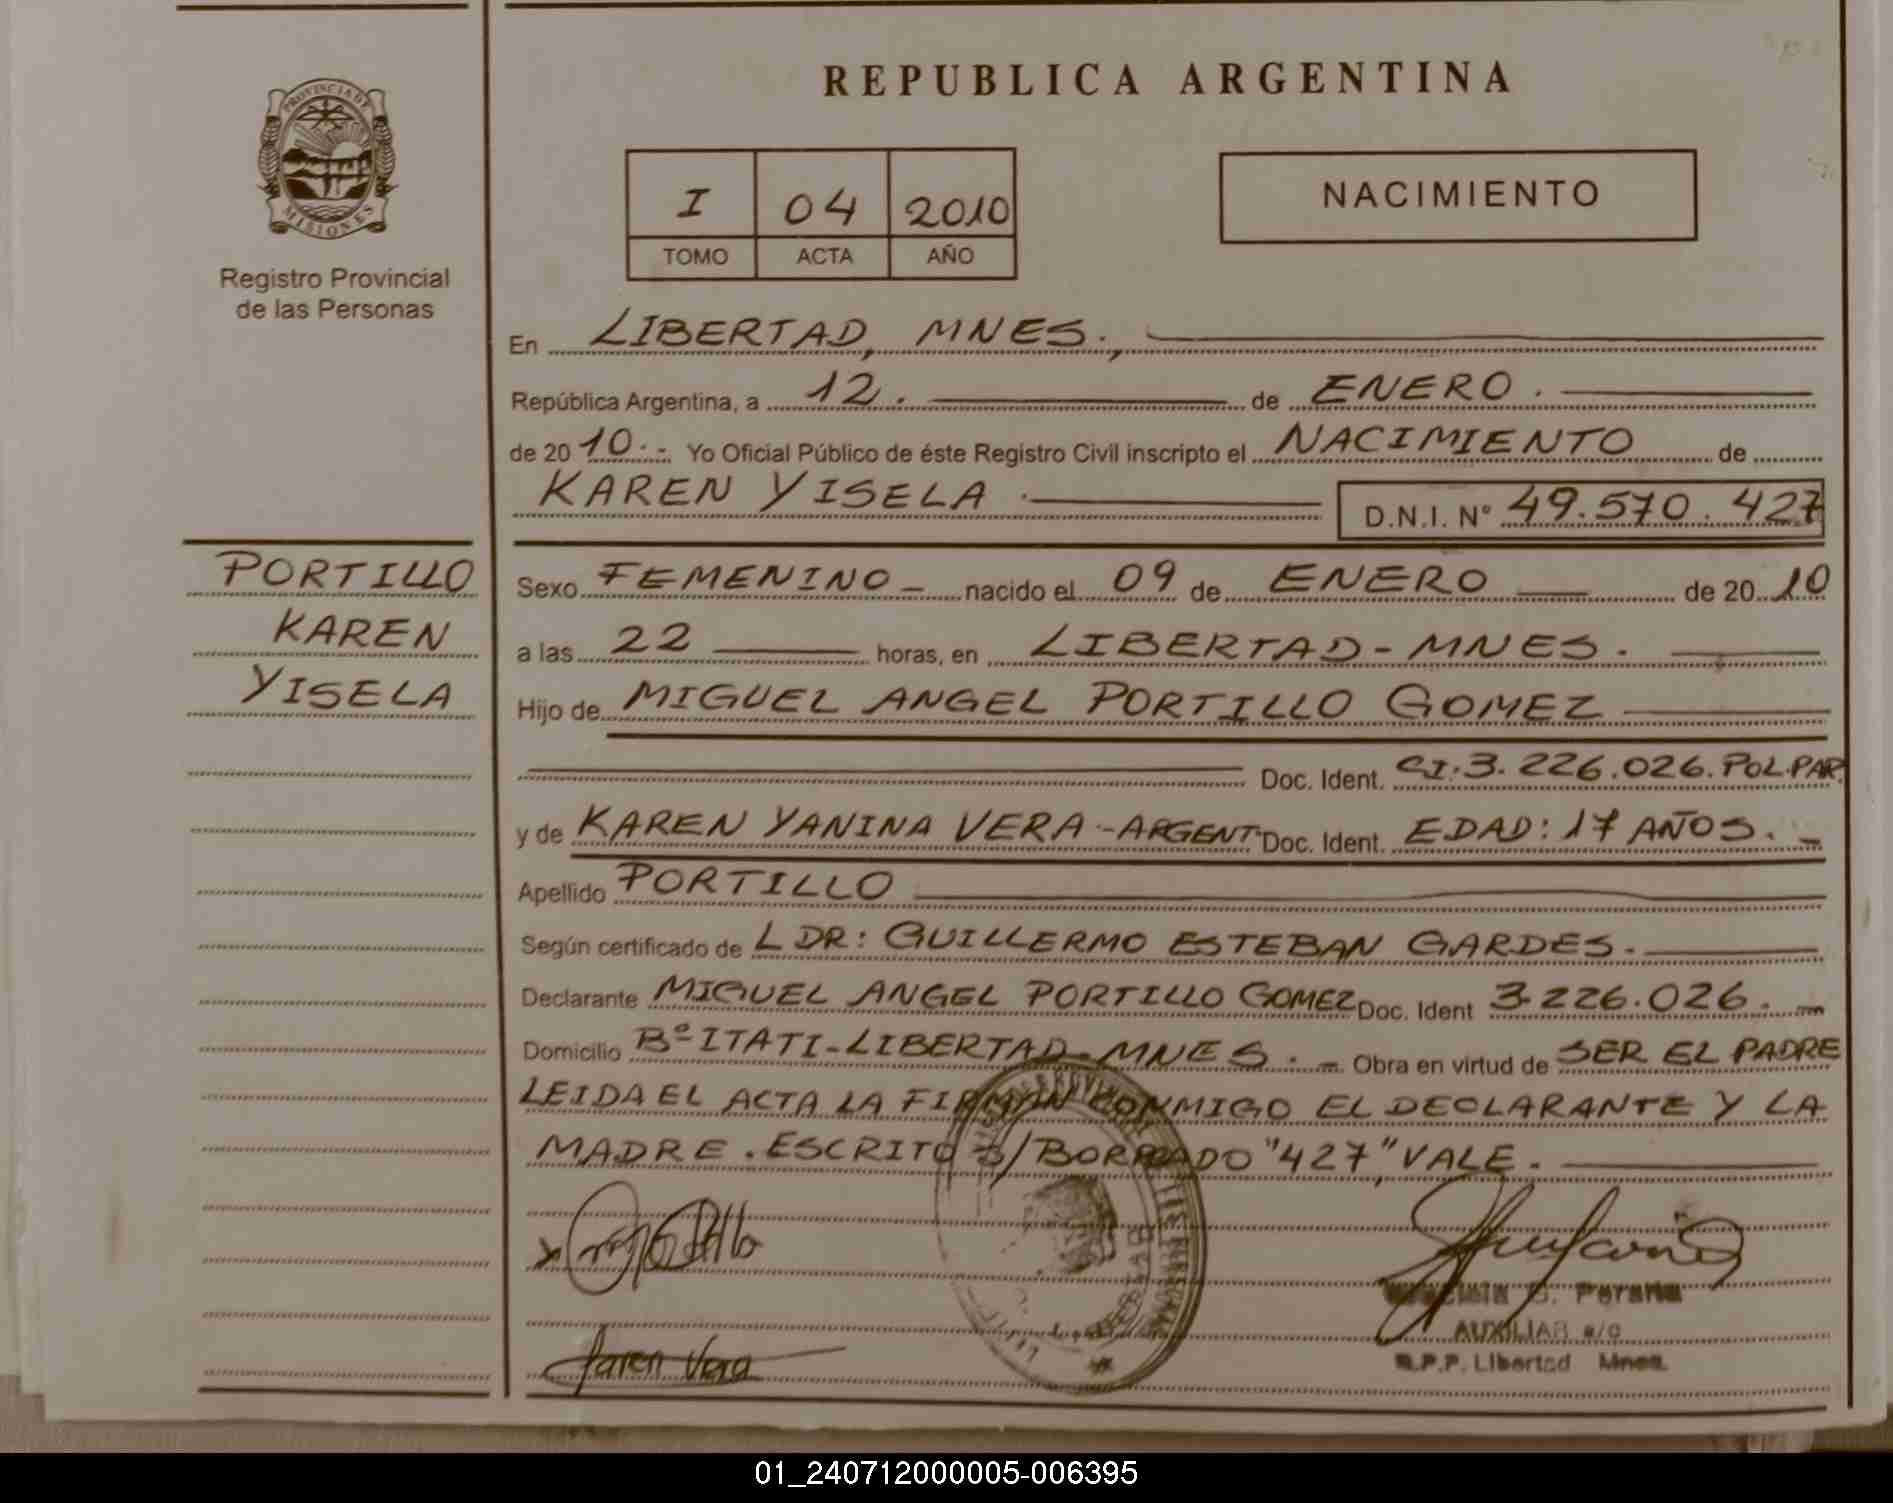 REPUBLICA ARGENTINA
PROVINCIA DE
MISIONES
Registro Provincial
de las Personas
I 04 2010
TOMO ACTA AÑO
NACIMIENTO
En LIBERTAD, MNES.,
República Argentina, a 12. de ENERO.
de 20 10.- Yo Oficial Público de éste Registro Civil inscripto el NACIMIENTO de
KAREN YISELA. D.N.I. N° 49.570.427
PORTILLO
KAREN
YISELA
Sexo FEMENINO - nacido el 09 de ENERO de 20 10
a las 22 horas, en LIBERTAD - MNES.
Hijo de MIGUEL ANGEL PORTILLO GOMEZ
Doc. Ident. CI: 3.226.026. POL.PAR.
y de KAREN YANINA VERA - ARGENT. Doc. Ident. EDAD: 17 AÑOS. -
Apellido PORTILLO
Según certificado de L DR: GUILLERMO ESTEBAN GARDES.
Declarante MIGUEL ANGEL PORTILLO GOMEZ Doc. Ident 3.226.026. -
Domicilio B° ITATI - LIBERTAD - MNES. - Obra en virtud de SER EL PADRE
LEIDA EL ACTA LA FIRMAN CONMIGO EL DECLARANTE Y LA
MADRE. ESCRITO S/BORRADO "427," VALE.
Karen Vera
AUXILIAR a/c
R.P.P. Libertad Mnes.
01_240712000005-006395